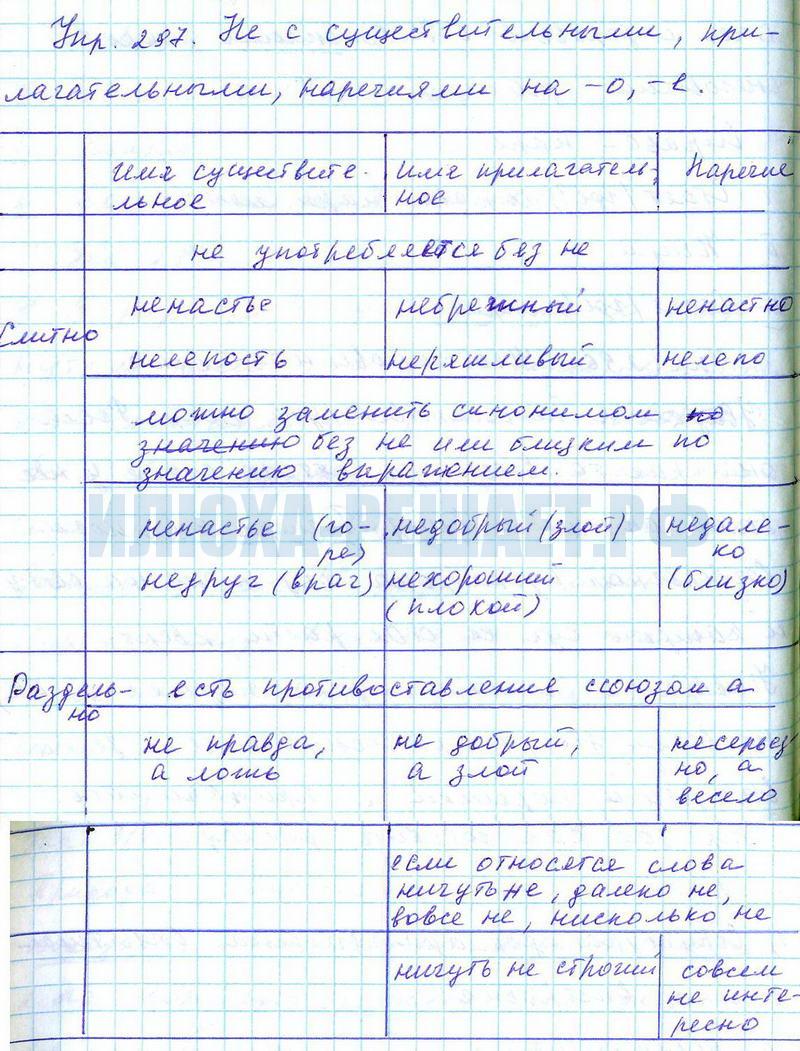 Упр. 297. Не с существительными, при-
лагательными, наречиями на -о, -е.
имя существите- имя прилагатель- Наречие
льное ное
не употребляется без не
Слитно
ненастье небрежный ненастно
нелепость неряшливый нелепо
можно заменить синонимом по
значению без не или близким по
значению выражением.
ИЛЮХА-РЕШАЕТ.РФ
ненастье (го- недобрый (злой) недале-
ре) ко
недруг (враг) нехороший (близко)
(плохой)
Раздель- есть противоставление союзом а
но
не правда, не добрый, несерьез
а ложь а злой но, а
весело
если относятся слова
ничуть не, далеко не,
вовсе не, нисколько не
ничуть не строгий совсем
не инте-
ресно